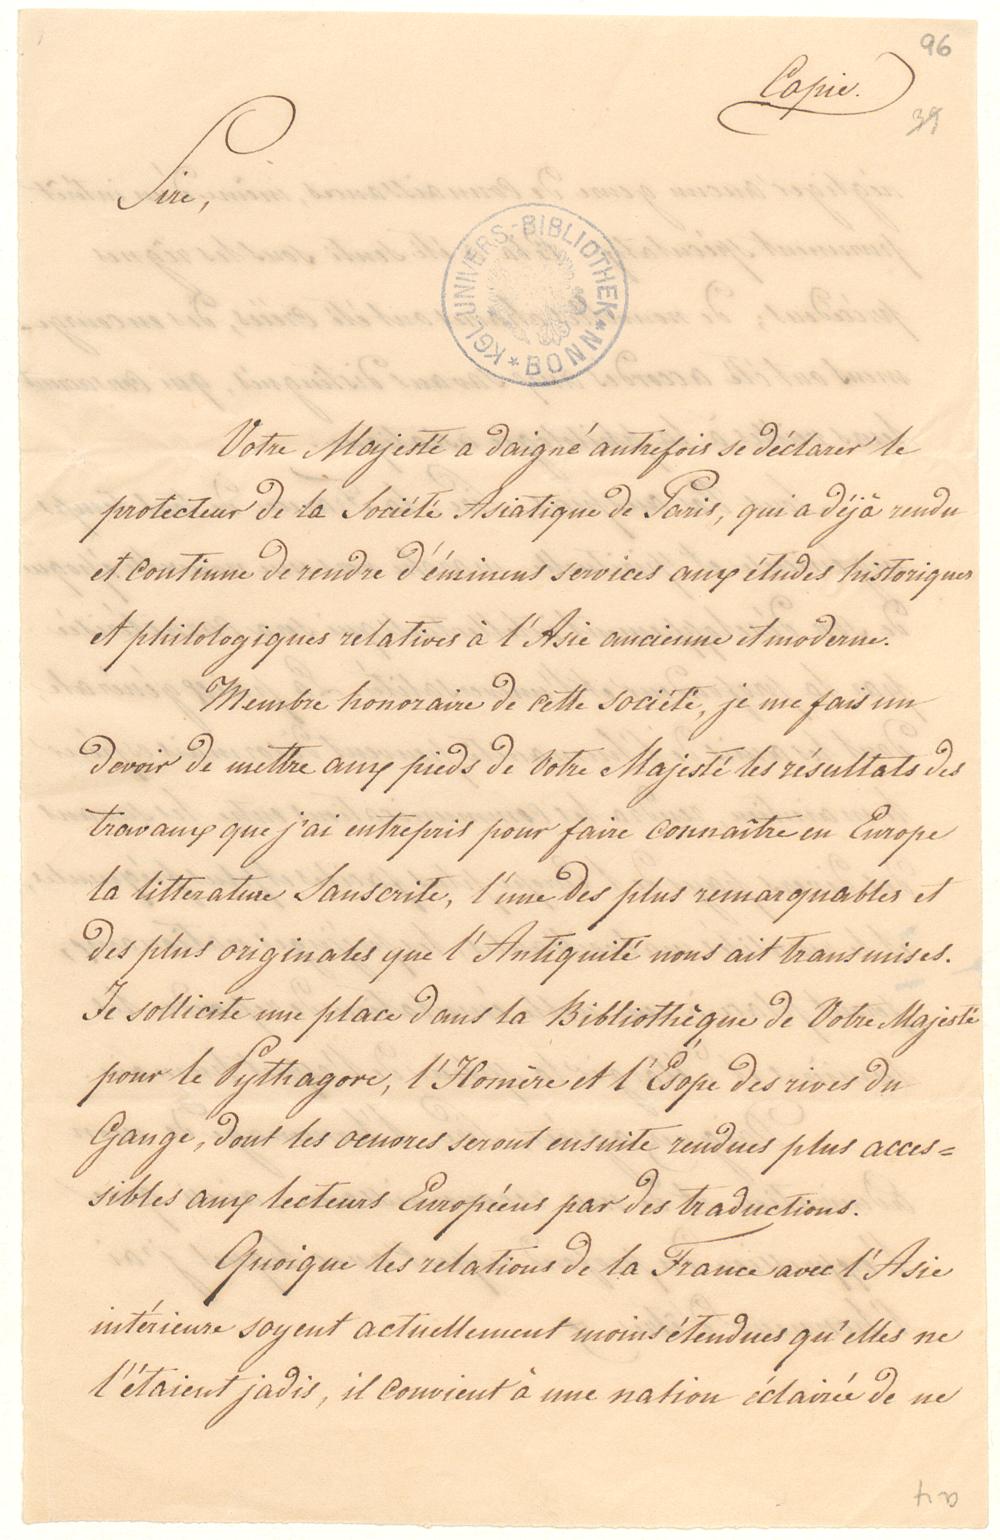 96
Copie.
39
Sire,
KGL. UNIVERS.-BIBLIOTHEK * BONN *
Votre Majesté a daigné autrefois se déclarer le
protecteur de la Société Asiatique de Paris, qui a déjà rendu
et continue de rendre d'éminens services aux études historiques
et philologiques relatives à l'Asie ancienne et moderne.
Membre honoraire de cette société, je me fais un
devoir de mettre aux pieds de Votre Majesté les résultats des
travaux que j'ai entrepris pour faire connaître en Europe
la litterature Sanscrite, l'une des plus remarquables et
des plus originales que l'Antiquité nous ait transmises.
Je sollicite une place dans la Bibliothèque de Votre Majesté
pour le Pythagore, l'Homère et l'Ésope des rives du
Gange, dont les oeuvres seront ensuite rendues plus acces=
sibles aux lecteurs Européens par des traductions.
Quoique les relations de la France avec l'Asie
intérieure soyent actuellement moins étendues qu'elles ne
l'étaient jadis, il convient à une nation éclairée de ne
a4